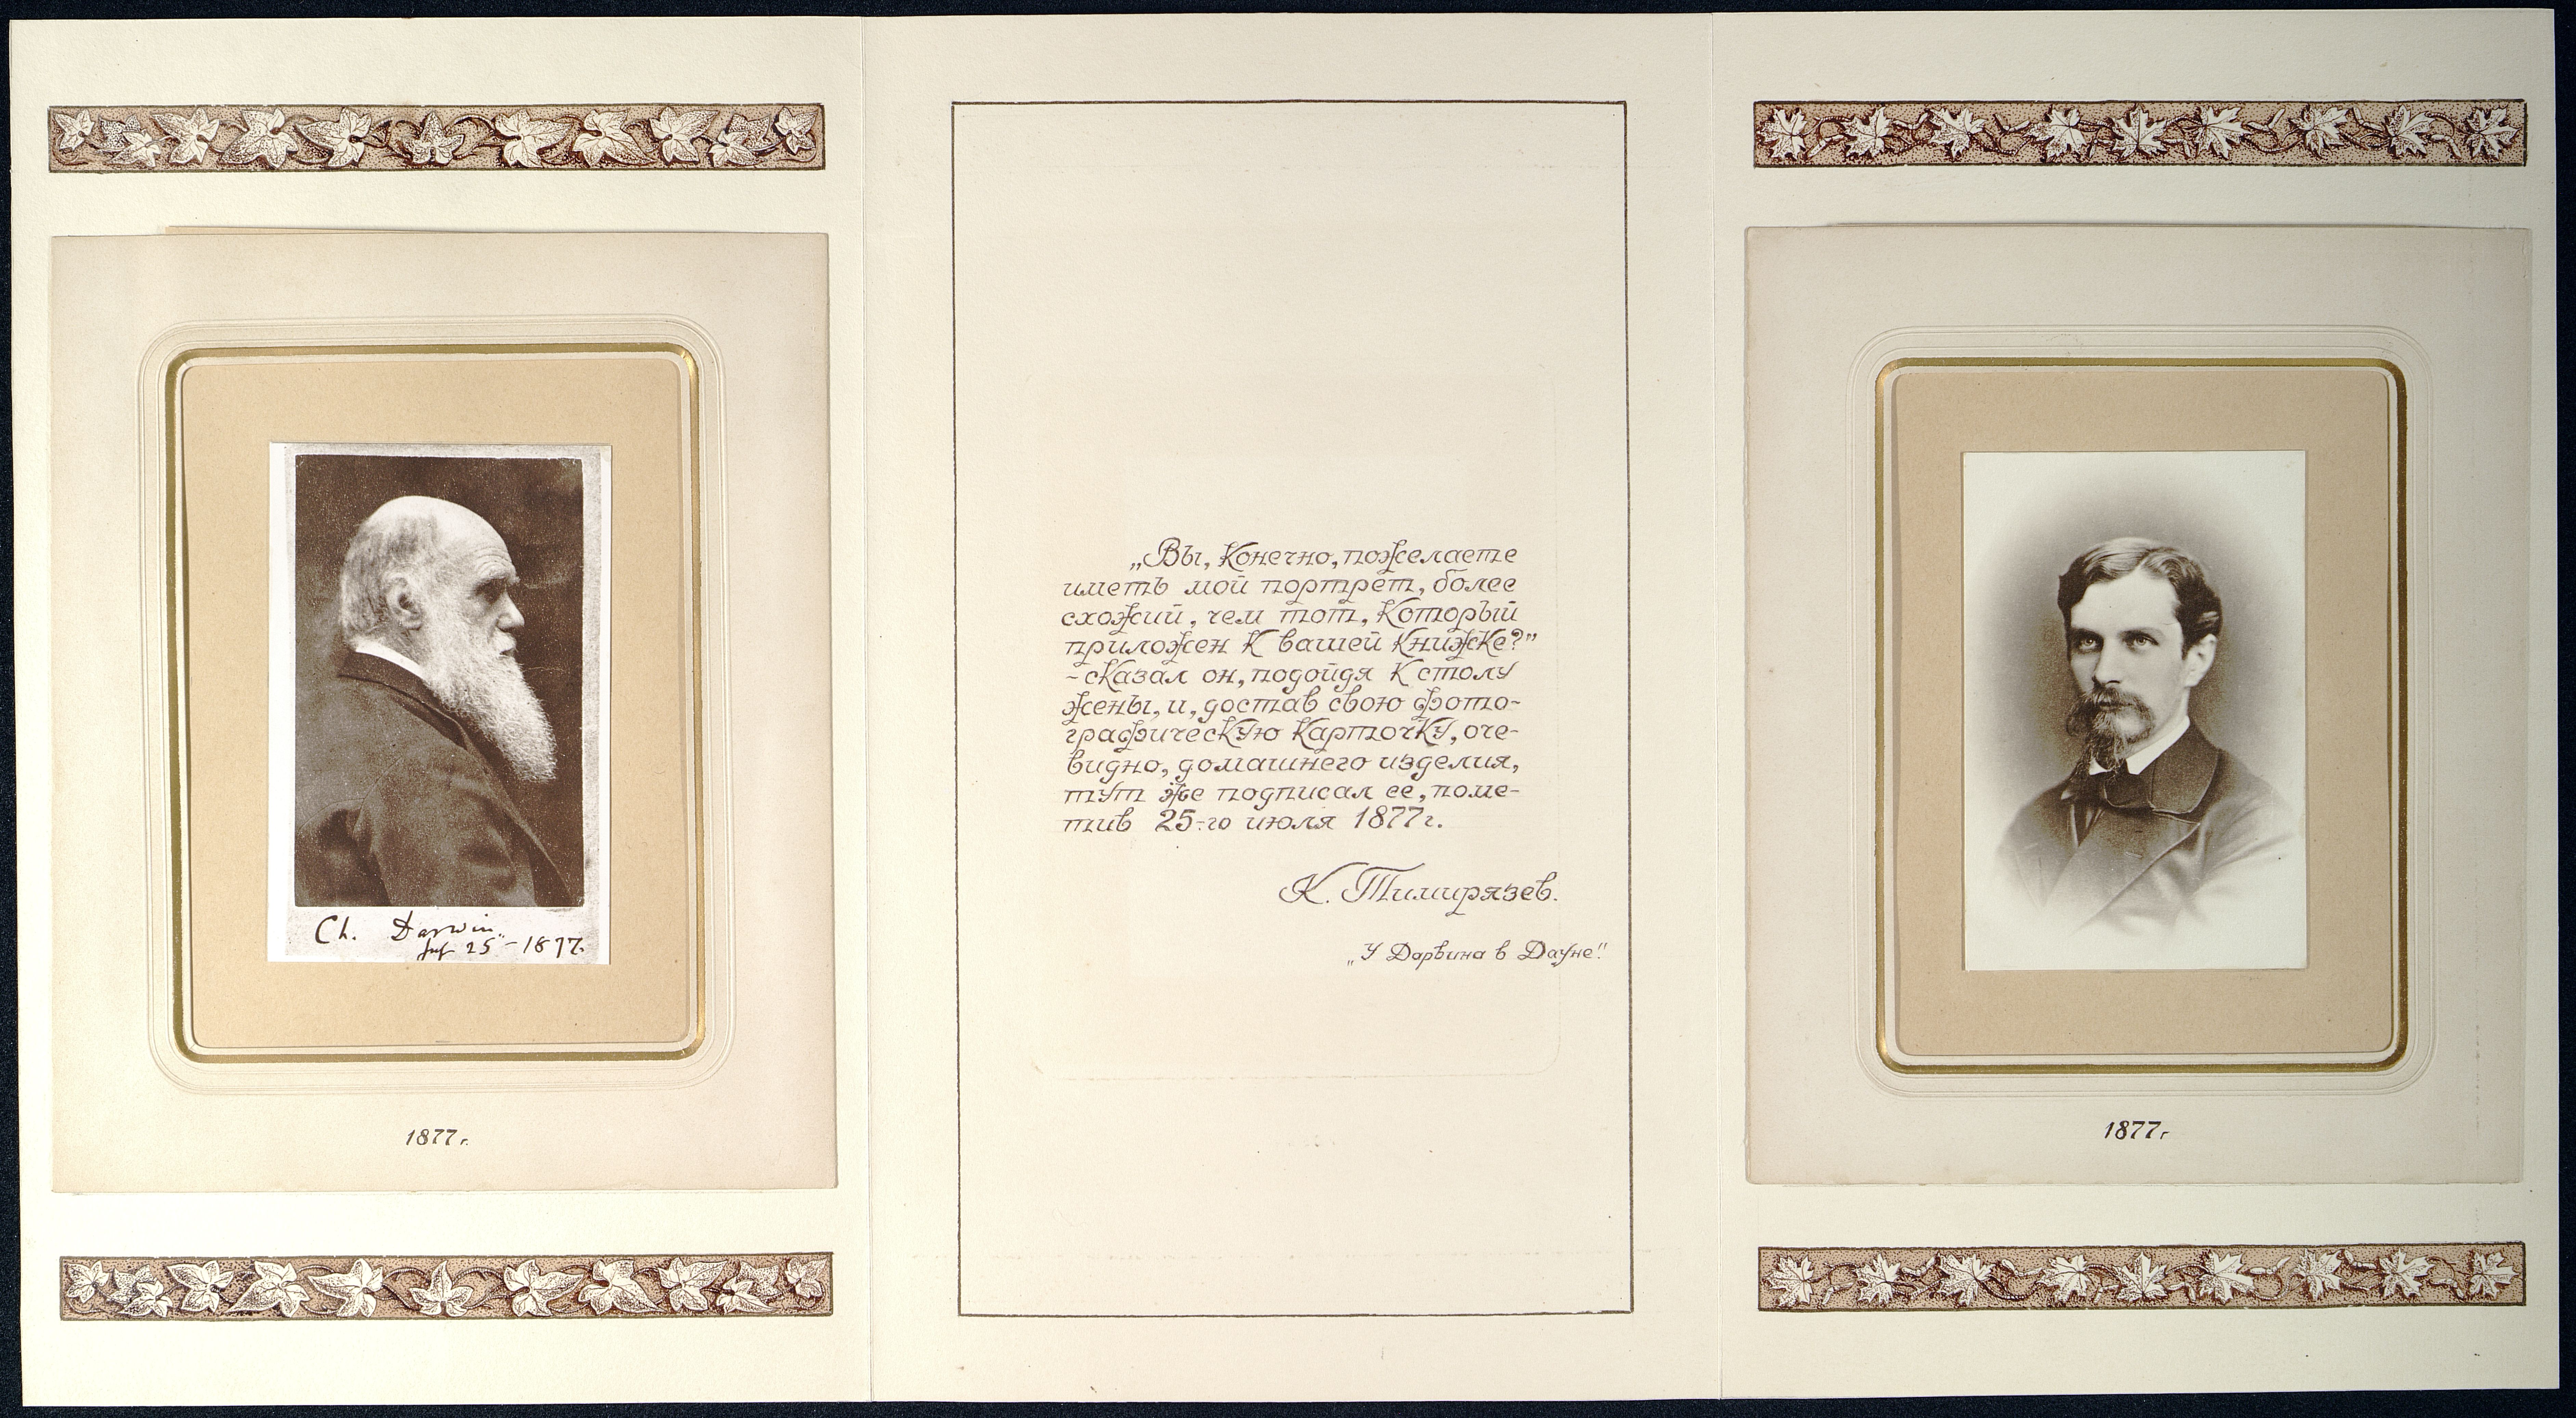 Ch. Darwin
July 25 - 1877.
1877г.
„Вы, конечно, пожелаете
иметь мой портрет, более
схожий, чем тот, который
приложен к вашей книжке?”
- сказал он, подойдя к столу
жены, и, достав свою фото-
графическую карточку, оче-
видно, домашнего изделия,
тут же подписал ее, поме-
тив 25-го июля 1877г.
К. Тимирязев.
„У Дарвина в Дауне”.
1877г